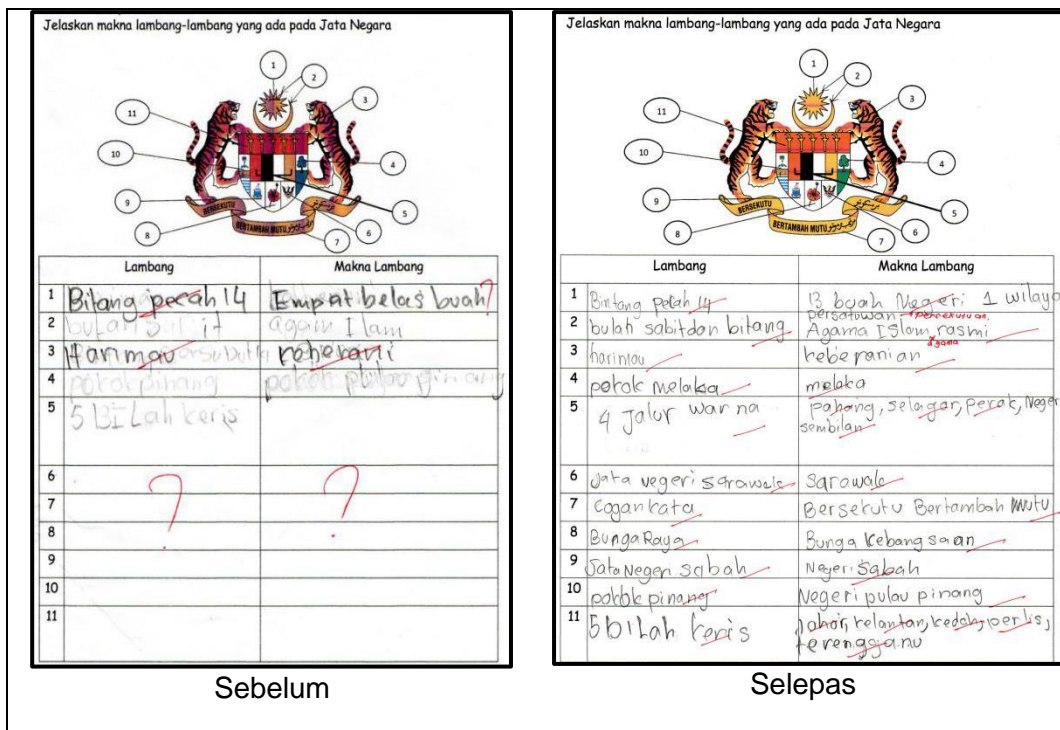 Jelaskan makna lambang-lambang yang ada pada Jata Negara
1
2
3
11
10
4
9
5
8
6
7
BERSEKUTU
BERTAMBAH MUTU
Lambang Makna Lambang
1 Bitang pecah 14 Empat belas buah?
2 bulan Sabit agam Ilam
3 Harimau keberani
4 pokok pinang pokok pulau pinang
5 5 BILah keris
6 ? ?
7
8
9
10
11
Sebelum
Jelaskan makna lambang-lambang yang ada pada Jata Negara
1
2
3
11
10
4
9
5
8
6
7
BERSEKUTU
BERTAMBAH MUTU
Lambang Makna Lambang
1 Bintang pecah 14 13 buah Negeri 1 wilayo
persatuwan persekutuan.
2 bulah sabit dan bitang Agama ISlam rasmi
agama
3 harimau keberanian
4 pokok melaka melaka
5 4 Jalur warna pahang, selagor, perak, Neger
sembilan
6 Jata negeri sarawak sarawak
7 Cogankata Bersekutu Bertambah Mutu
8 Bunga Raya Bunga kebangsaan
9 Jata Negeri sabah Negeri Sabah
10 pokok pinang Negeri pulau pinang
11 5 bilah keris Johor, kelantan, kedah, perlis,
terengganu
Selepas